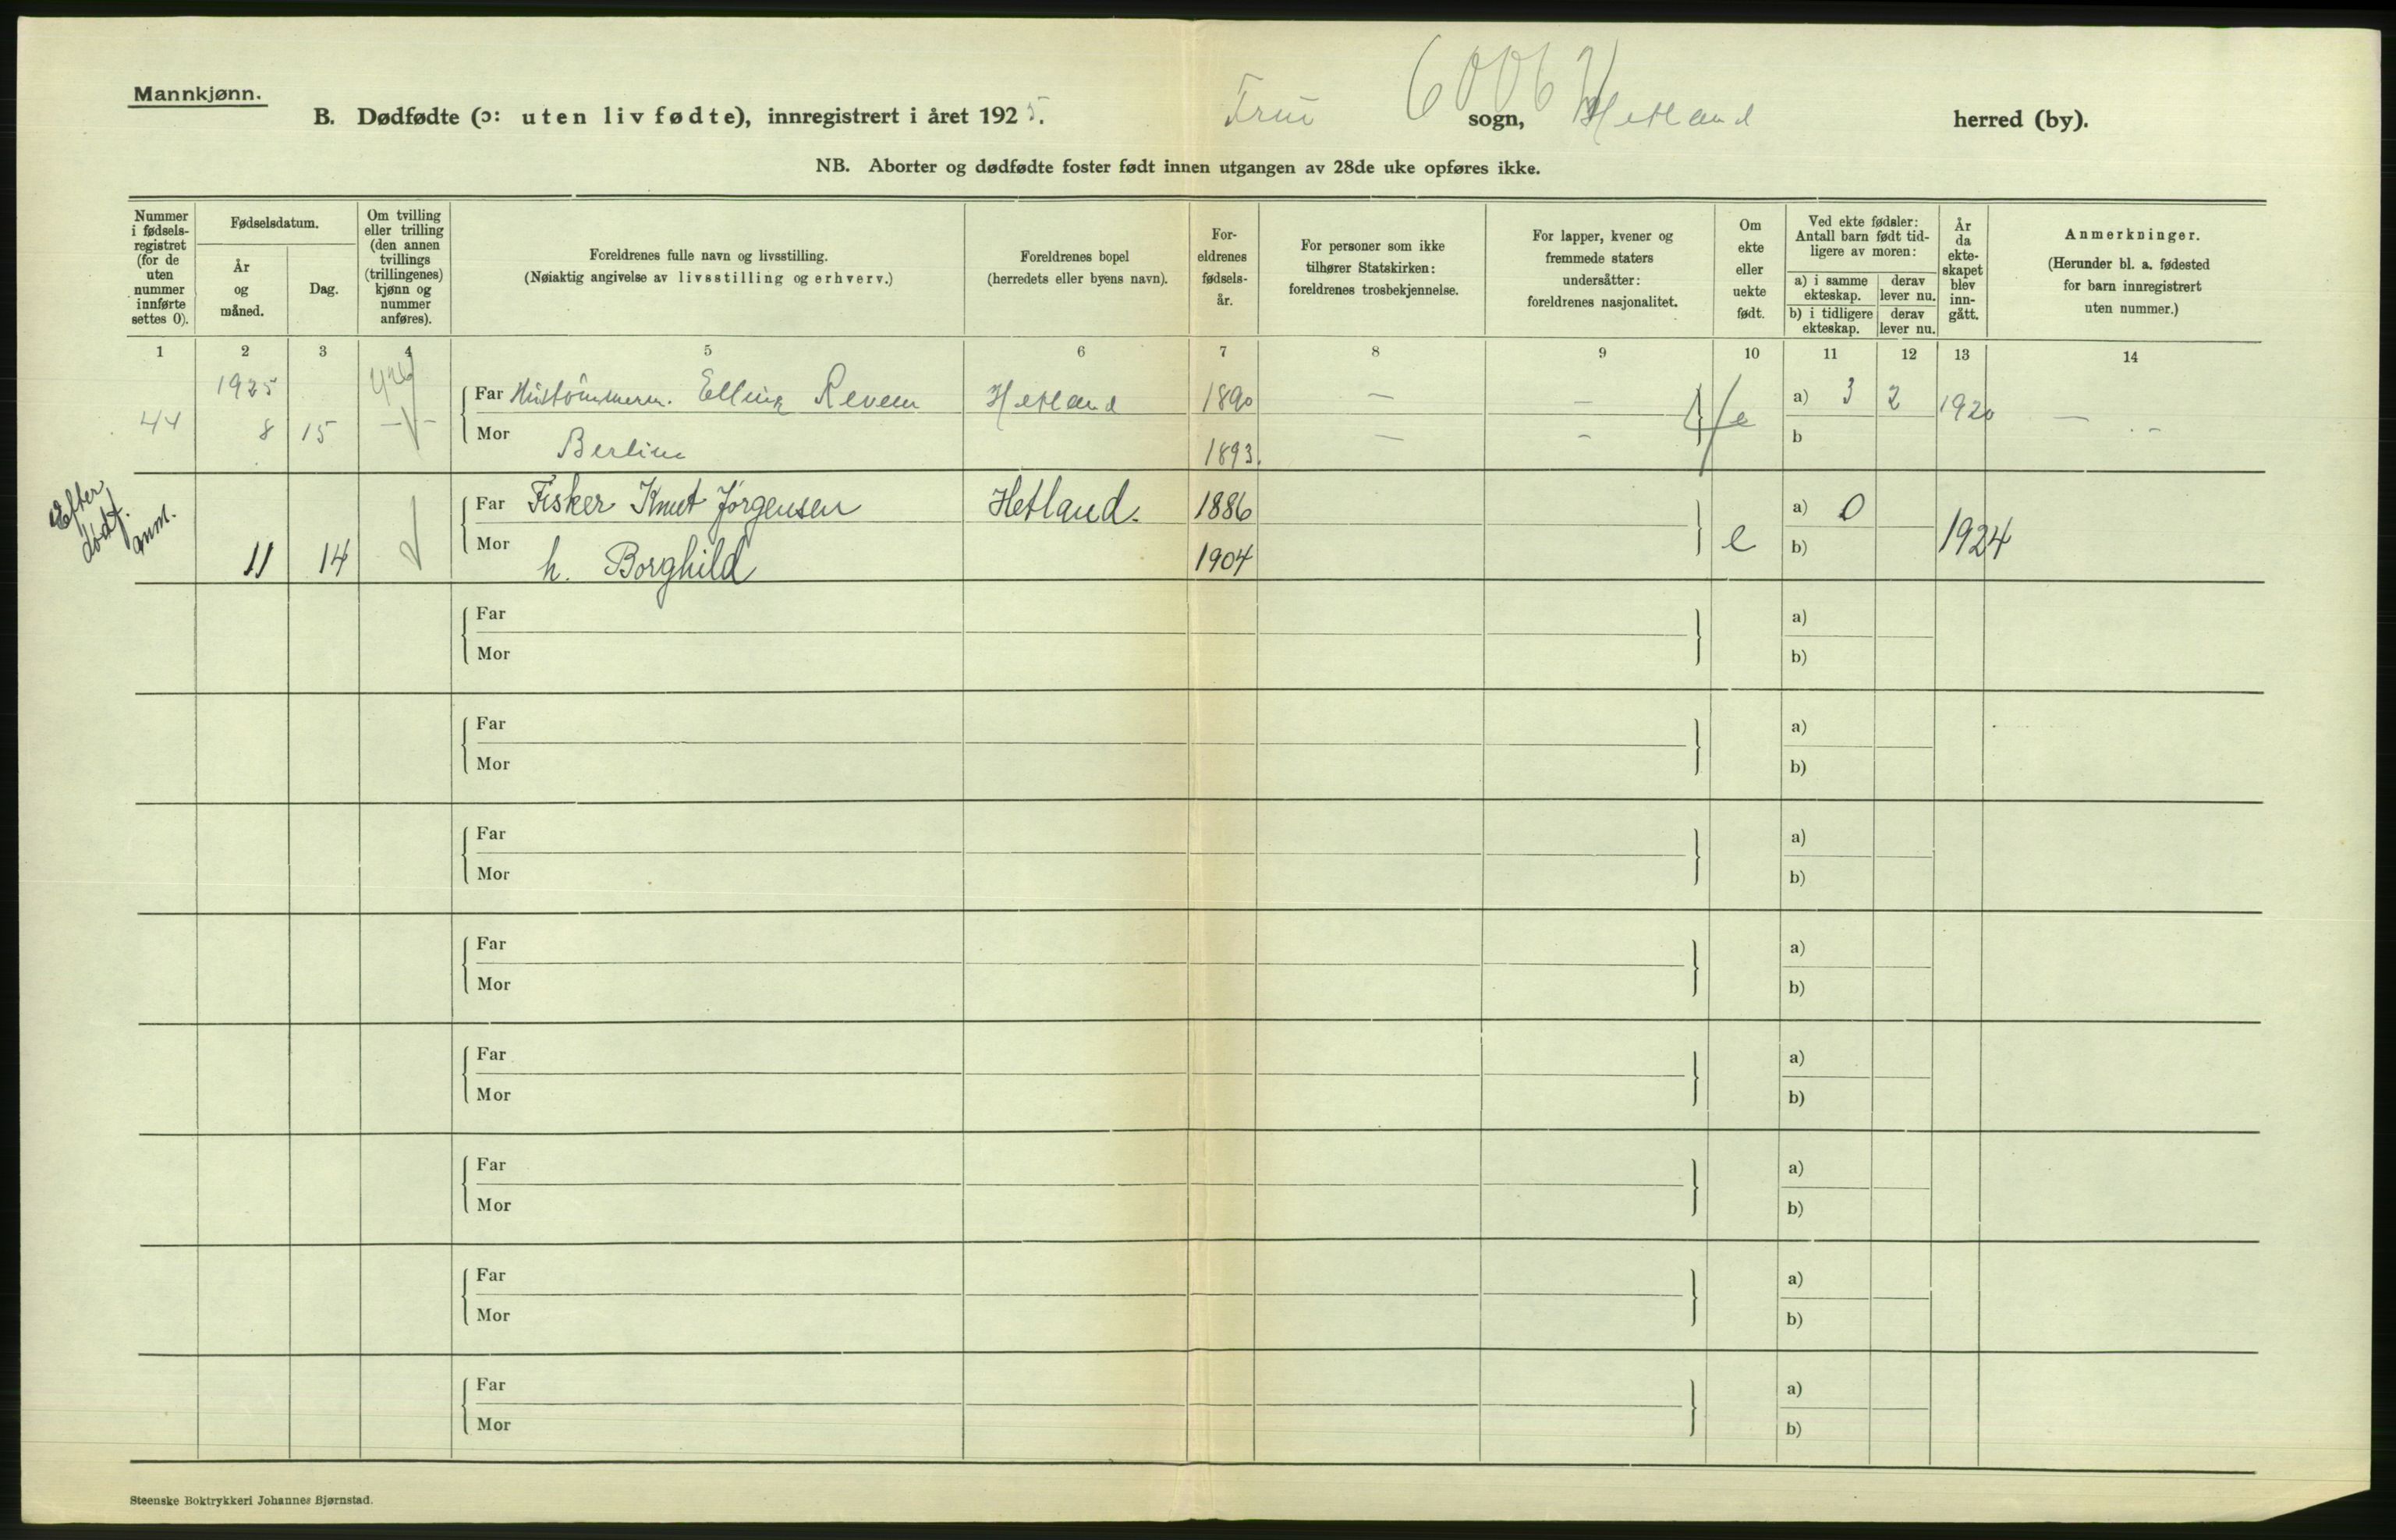 Mannkjønn.
B. Dødfødte (ɔ: uten liv fødte), innregistrert i året 1925. Frue sogn, Hetland herred (by).
NB. Aborter og dødfødte foster født innen utgangen av 28de uke opføres ikke.
Nummer i fødselsregistret (for de uten nummer innførte settes 0).
Fødselsdatum.
År og måned.
Dag.
Om tvilling eller trilling (den annen tvillings (trillingenes) kjønn og nummer anføres).
Foreldrenes fulle navn og livsstilling.
(Nøiaktig angivelse av livsstilling og erhverv.)
Foreldrenes bopel
(herredets eller byens navn).
Foreldrenes fødselsår.
For personer som ikke tilhører Statskirken: foreldrenes trosbekjennelse.
For lapper, kvener og fremmede staters undersåtter: foreldrenes nasjonalitet.
Om ekte eller uekte født.
Ved ekte fødsler: Antall barn født tidligere av moren:
a) i samme ekteskap. derav lever nu.
b) i tidligere ekteskap. derav lever nu.
År da ekteskapet blev inngått.
Anmerkninger.
(Herunder bl. a. fødested for barn innregistrert uten nummer.)
1 2 3 4 5 6 7 8 9 10 11 12 13 14
1925 Far Elling Hetland 1890 — — a) 3 2 1920 —
44 8 15 — Mor Berline 1893. — - e b
Efter dødf. anm.
Far Fisker Knut Jørgensen Hetland. 1886 a) 0
11 14 Mor h. Borghild 1904 e b) 1924
Far a)
Mor b)
Far a)
Mor b)
Far a)
Mor b)
Far a)
Mor b)
Far a)
Mor b)
Far a)
Mor b)
Far a)
Mor b)
Far a)
Mor b)
Steenske Boktrykkeri Johannes Bjørnstad.